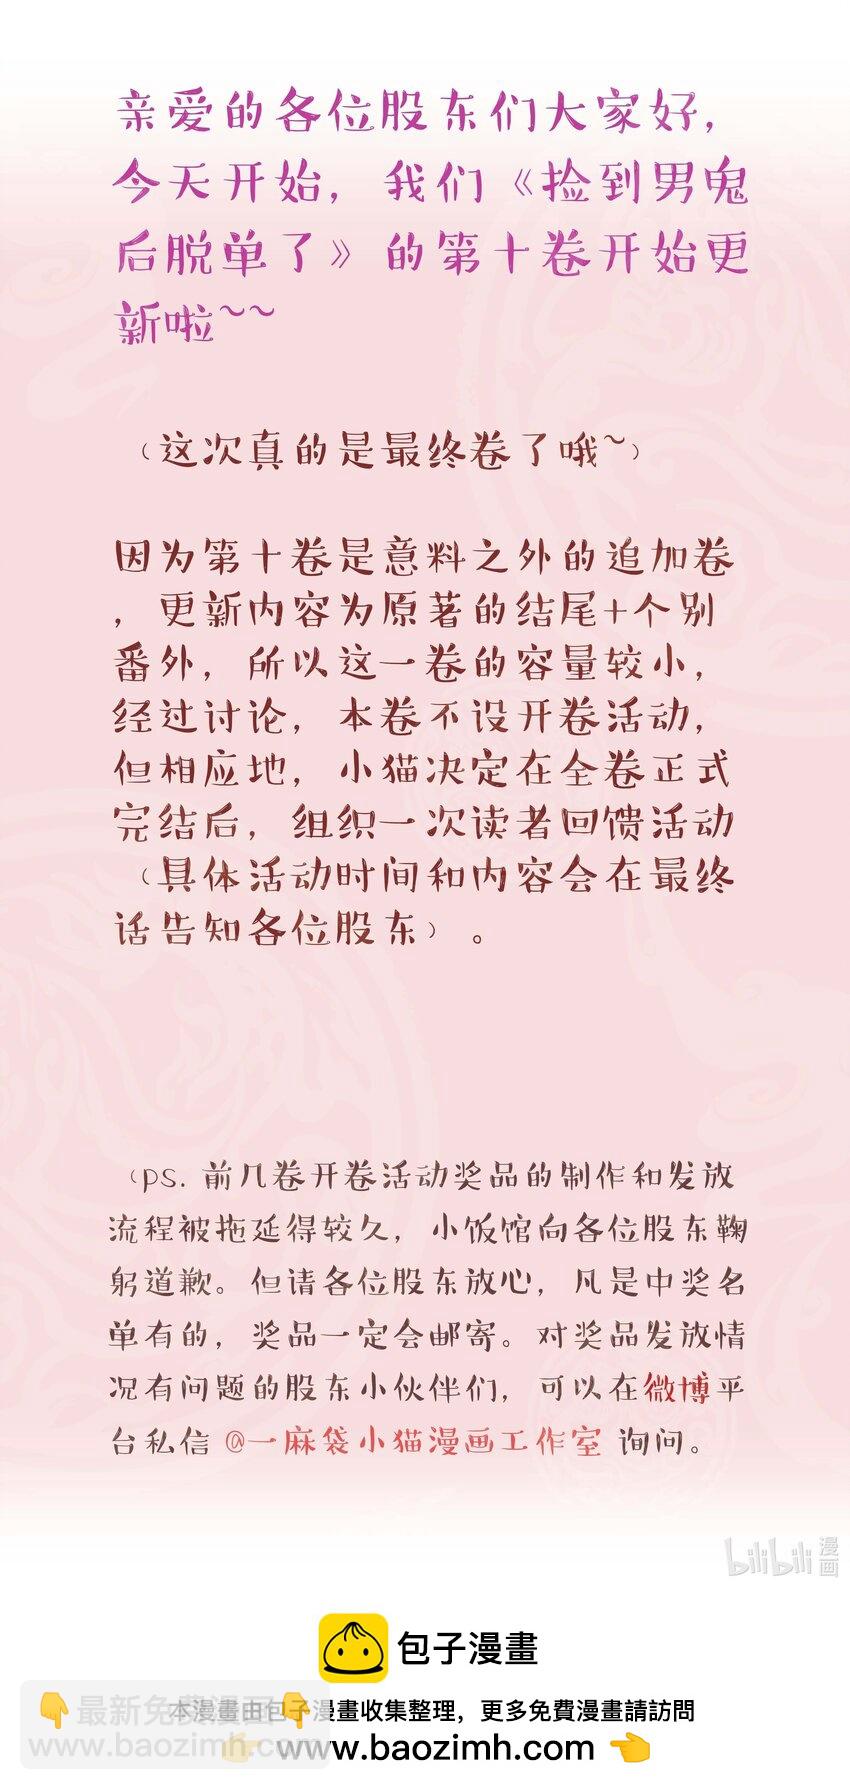 亲爱的各位股东们大家好，
今天开始，我们《捡到男鬼
后脱单了》的第十卷开始更
新啦~~
（这次真的是最终卷了哦~）
因为第十卷是意料之外的追加卷
，更新内容为原著的结尾+个别
番外，所以这一卷的容量较小，
经过讨论，本卷不设开卷活动，
但相应地，小猫决定在全卷正式
完结后，组织一次读者回馈活动
（具体活动时间和内容会在最终
话告知各位股东）。
（ps. 前几卷开卷活动奖品的制作和发放
流程被拖延得较久，小饭馆向各位股东鞠
躬道歉。但请各位股东放心，凡是中奖名
单有的，奖品一定会邮寄。对奖品发放情
况有问题的股东小伙伴们，可以在微博平
台私信 @一麻袋小猫漫画工作室 询问。
bilibili 漫画
包子漫畫
本漫畫由包子漫畫收集整理，更多免費漫畫請訪問
👉 www.baozimh.com 👈
👇最新免费漫画👇
www.baozimh.com